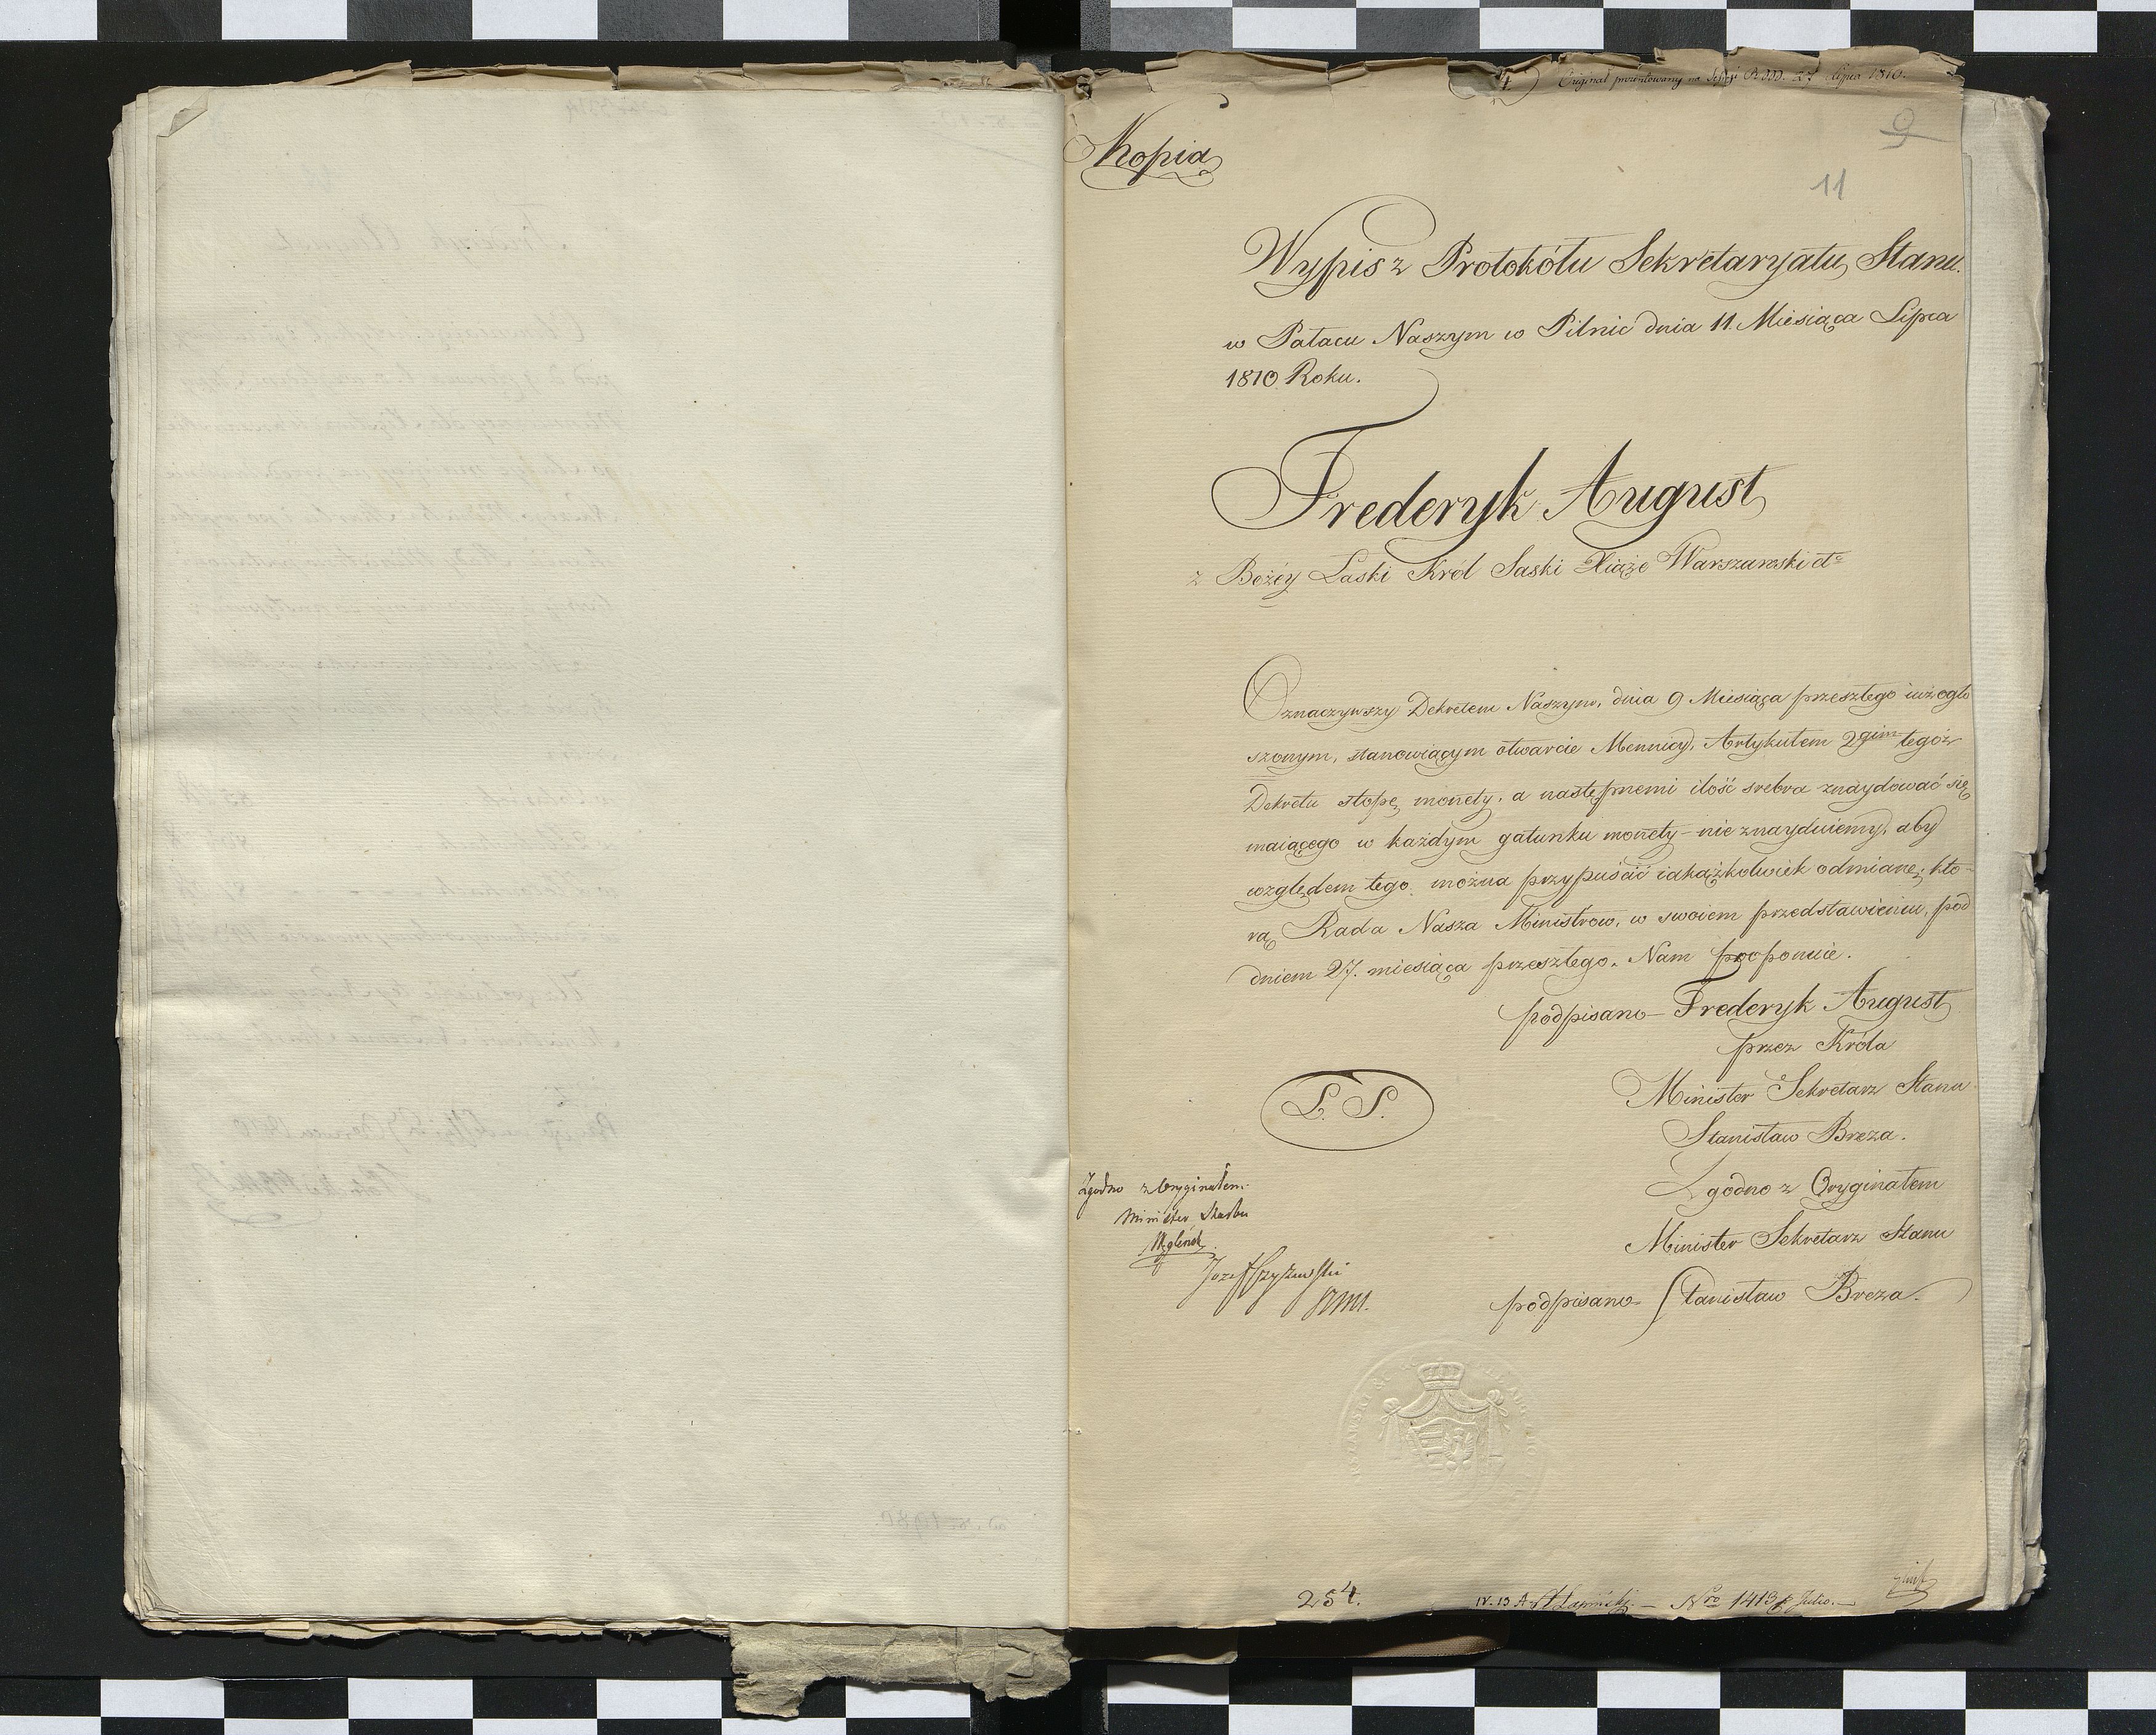 Original prezentowany na Sessyi R. M. 27 Lipca 1810.
9
Kopia
11
Wypis z Protokółu Sekretaryatu Stanu.
w Pałacu Naszym w Pilnic dnia 11. Miesiąca Lipca
1810 Roku.
Frederyk August
z Bożéy Łaski Król Saski Xiąże Warszawski etc
Oznaczywszy Dekretem Naszym, dnia 9 Miesiąca przeszłego iuż ogło
szonym, stanowiącym otwarcie Mennicy, Artykułem 2gim tegóż
Dekretu stopę monety, a następnemi ilość srebra znaydować się
maiącego w każdym gatunku monety - nie znayduiemy, aby
względem tego można przypuścić iakążkolwiek odmianę, któ-
rą Rada Nasza Ministrów, w swoiem przedstawieniu, pod
dniem 27. miesiąca przeszłego. Nam proponuie.
podpisano - Frederyk August
przez Króla
Minister Sekretarz Stanu
L. S.
Stanisław Breza.
Zgodno z Oryginałem
Minister Skarbu
Węgleński
Zgodno z Oryginałem
Minister Sekretarz Stanu
podpisano Stanisław Breza.
254.
Nro 1413 Julio.